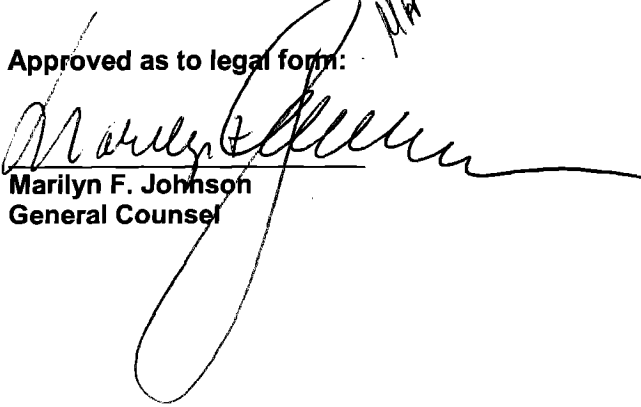 Approved as to legal form:
Marilyn F. Johnson
Marilyn F. Johnson
General Counsel